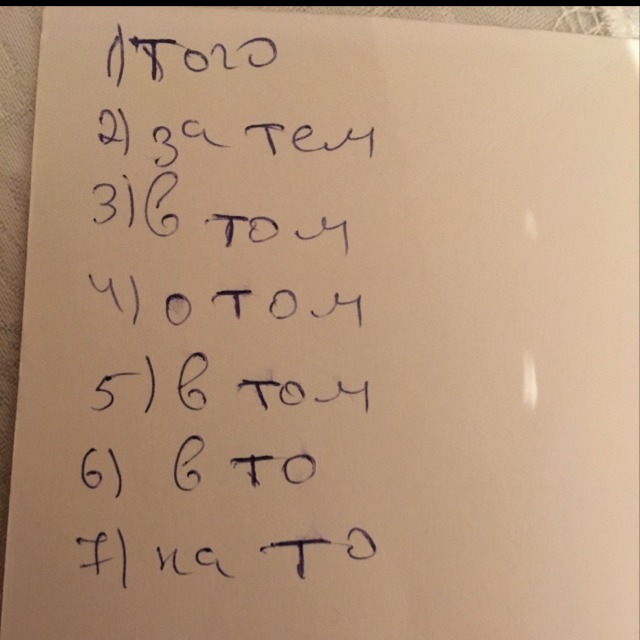 1) того
2) за тем
3) в том
4) о том
5) в том
6) в то
7) на то